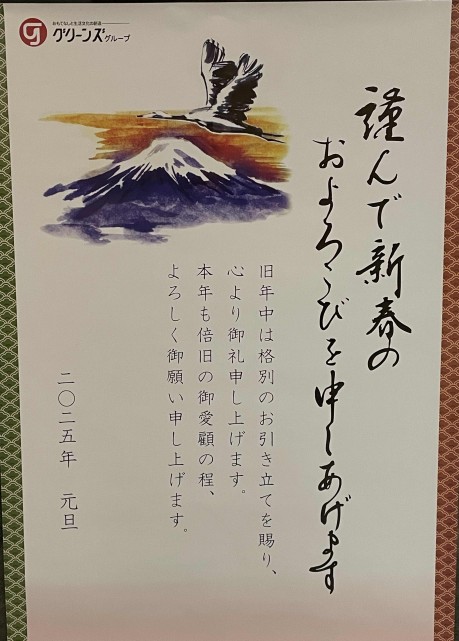 おもてなしと生活文化の創造
グリーンズグループ
謹んで新春の
およろこびを申しあげます
旧年中は格別のお引き立てを賜り、
心より御礼申し上げます。
本年も倍旧の御愛顧の程、
よろしく御願い申し上げます。
二〇二五年 元旦